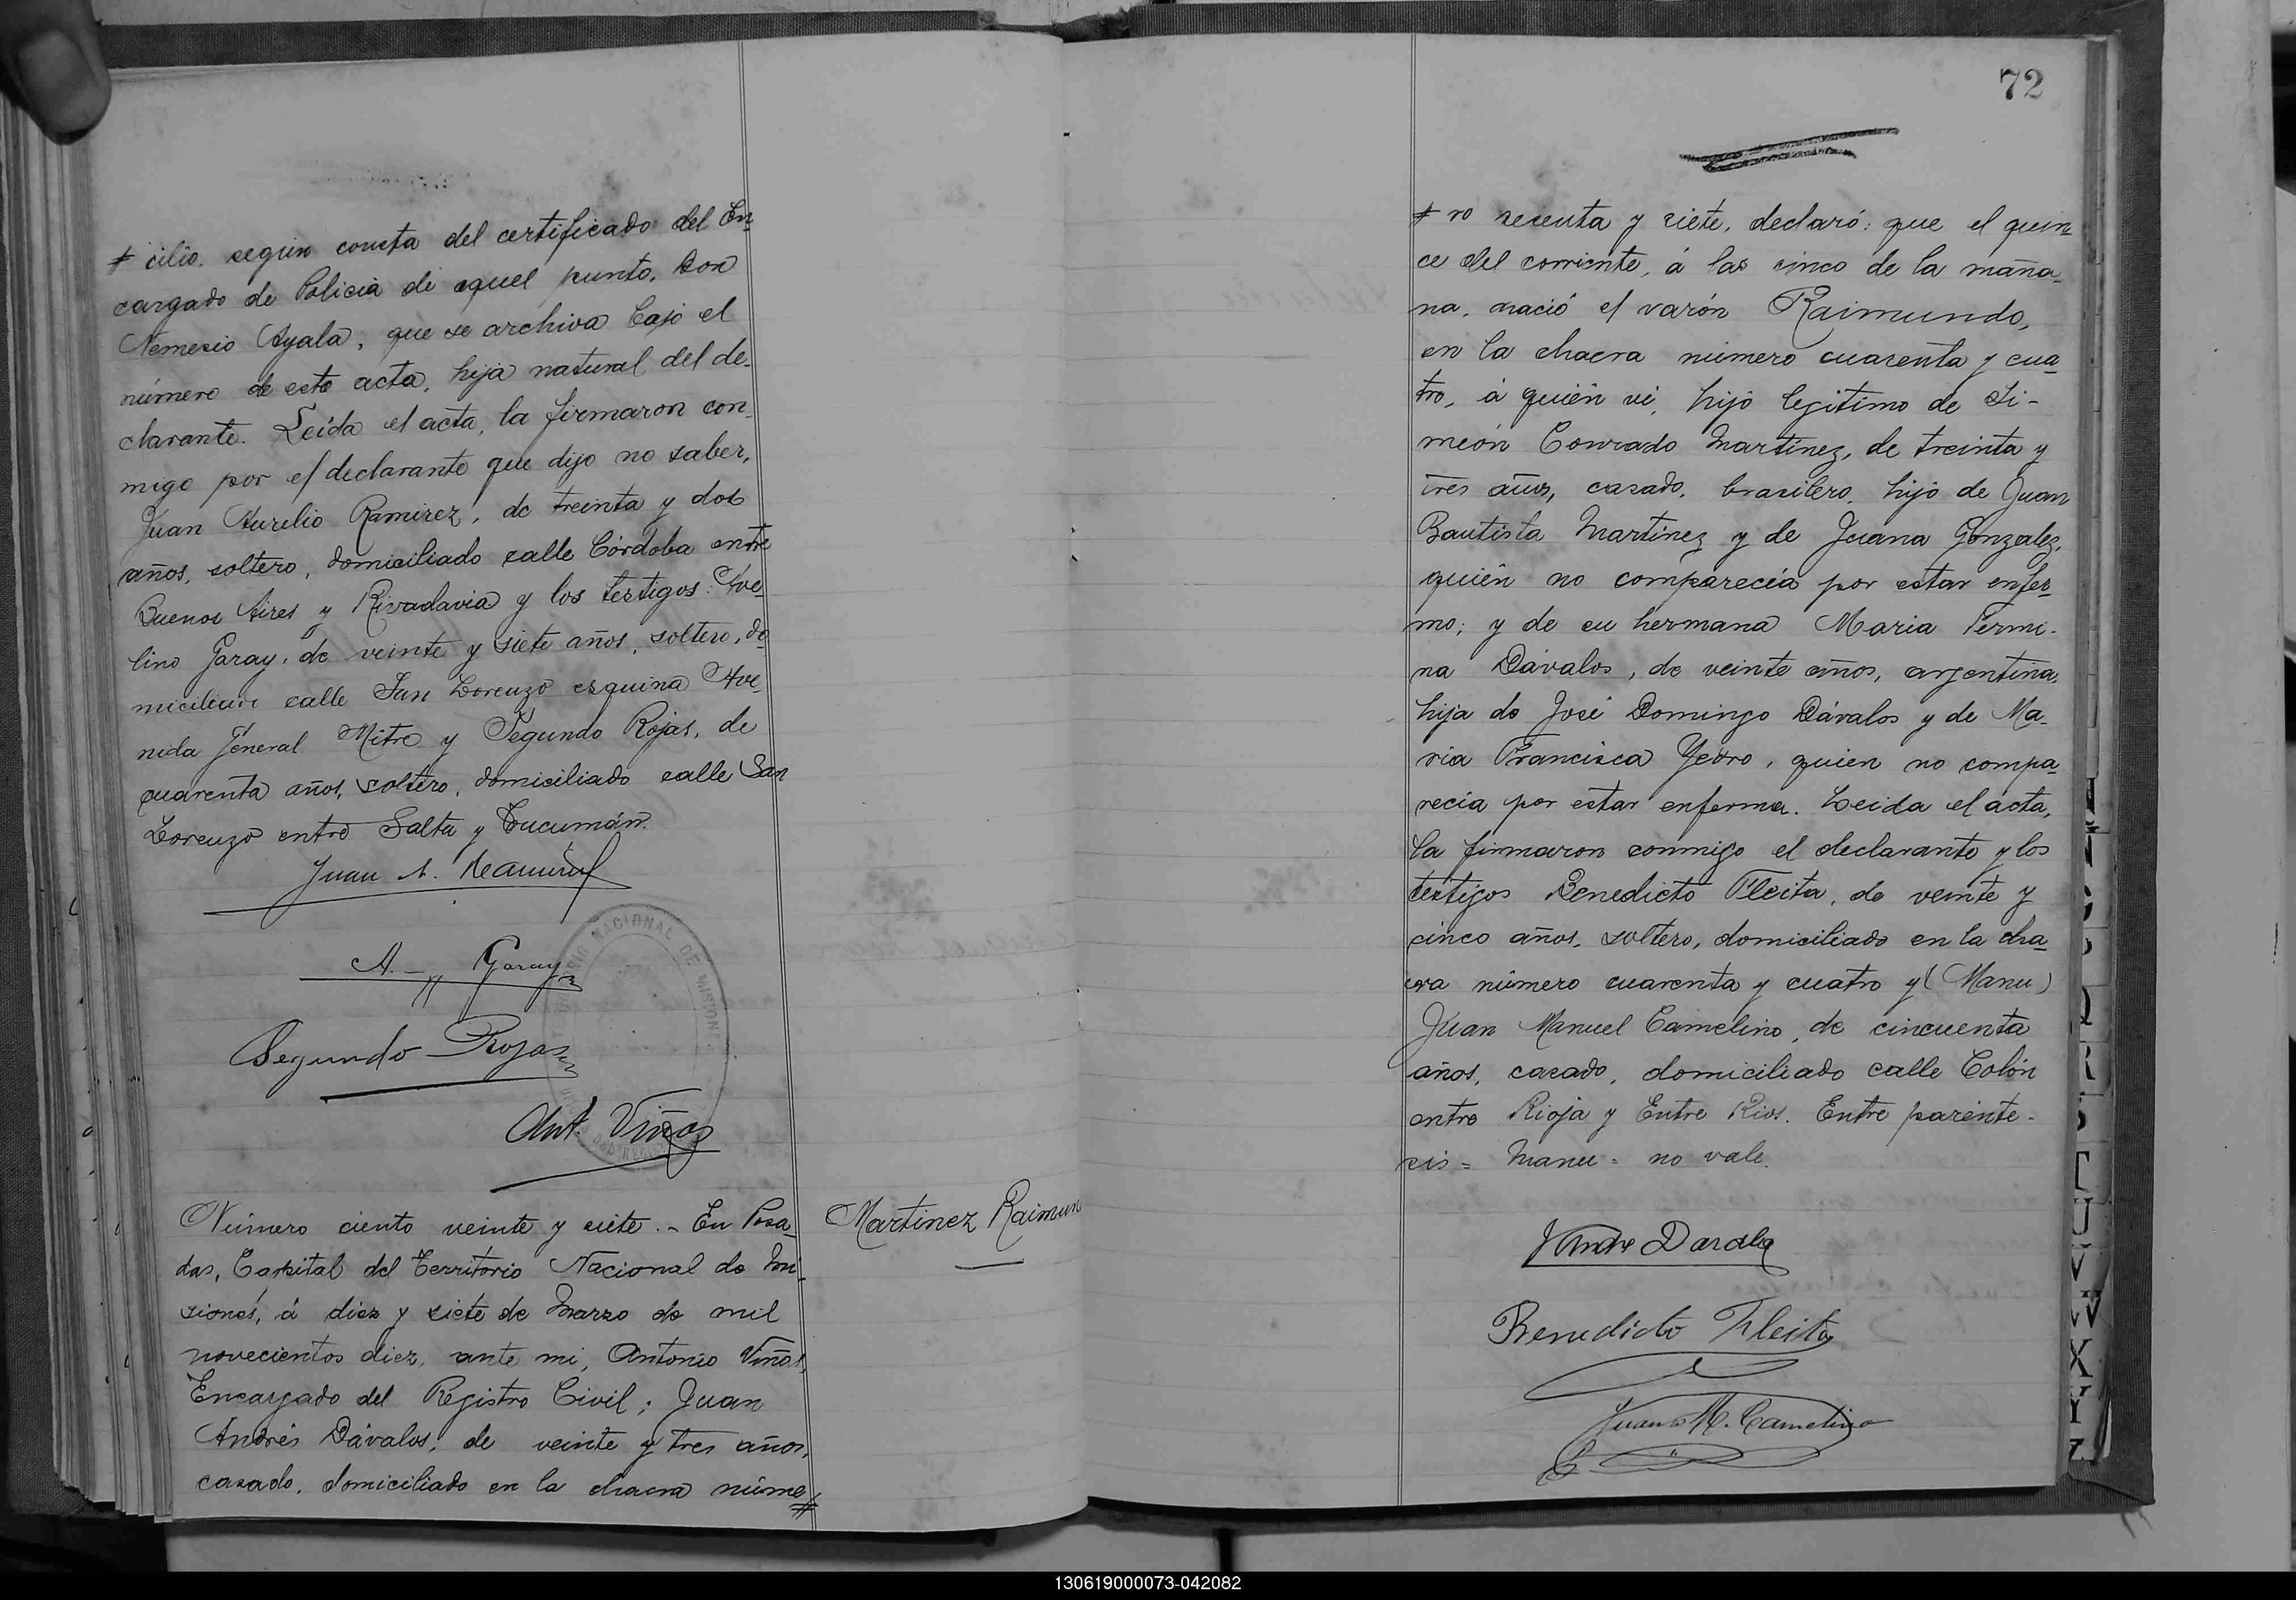 # cilio. según consta del certificado del En-
cargado de Policia de aquel punto, Don
Nemesio Ayala, que se archiva bajo el
número de esta acta, hija natural del de-
clarante. Leída el acta, la firmaron con-
migo por el declarante que dijo no saber,
Juan Aurelio Ramirez, de treinta y dos
años, soltero, domiciliado calle Córdoba entre
Buenos Aires y Rivadavia y los testigos: Ave-
lino Garay, de veinte y siete años, soltero, do-
miciliado calle San Lorenzo esquina Ave-
nida General Mitre y Segundo Rojas, de
cuarenta años, soltero, domiciliado calle San
Lorenzo entre Salta y Tucumán.
Juan A. Ramirez
A. Garay
Segundo Rojas
NACIONAL DE MISION
Ant. Viñas
Número ciento veinte y siete. - En Posa-
das, Capital del Territorio Nacional de Mi-
siones, á diez y siete de Marzo de mil
novecientos diez, ante mi, Antonio Viñas,
Encargado del Registro Civil; Juan
Andrés Dávalos, de veinte y tres años,
casado, domiciliado en la chacra núme#
Martinez Raimun
72
# ro sesenta y siete, declaró: que el quin-
ce del corriente, á las cinco de la maña-
na, nació el varón Raimundo,
en la chacra número cuarenta y cua-
tro, á quién vi, hijo legitimo de Si-
meón Conrado Martínez, de treinta y
tres años, casado, brasilero, hijo de Juan
Bautista Martinez y de Juana Gonzalez,
quién no comparecía por estar enfer-
mo; y de su hermana Maria Fermi-
na Dávalos, de veinte años, argentina,
hija de José Domingo Dávalos y de Ma-
ria Francisca Yedro, quien no compa-
recía por estar enferma. Leida el acta,
la firmaron conmigo el declarante y los
testigos Benedicto Fleita, de veinte y
cinco años, soltero, domiciliado en la cha-
cra número cuarenta y cuatro y (Manu)
Juan Manuel Camelino, de cincuenta
años, casado, domiciliado calle Colón
entre Rioja y Entre Rios. Entre parénte-
sis = Manu = no vale.
Benedicto Fleita
Juan M. Camelino
Q
R
S
T
U
V
W
X
Y
Z
130619000073-042082